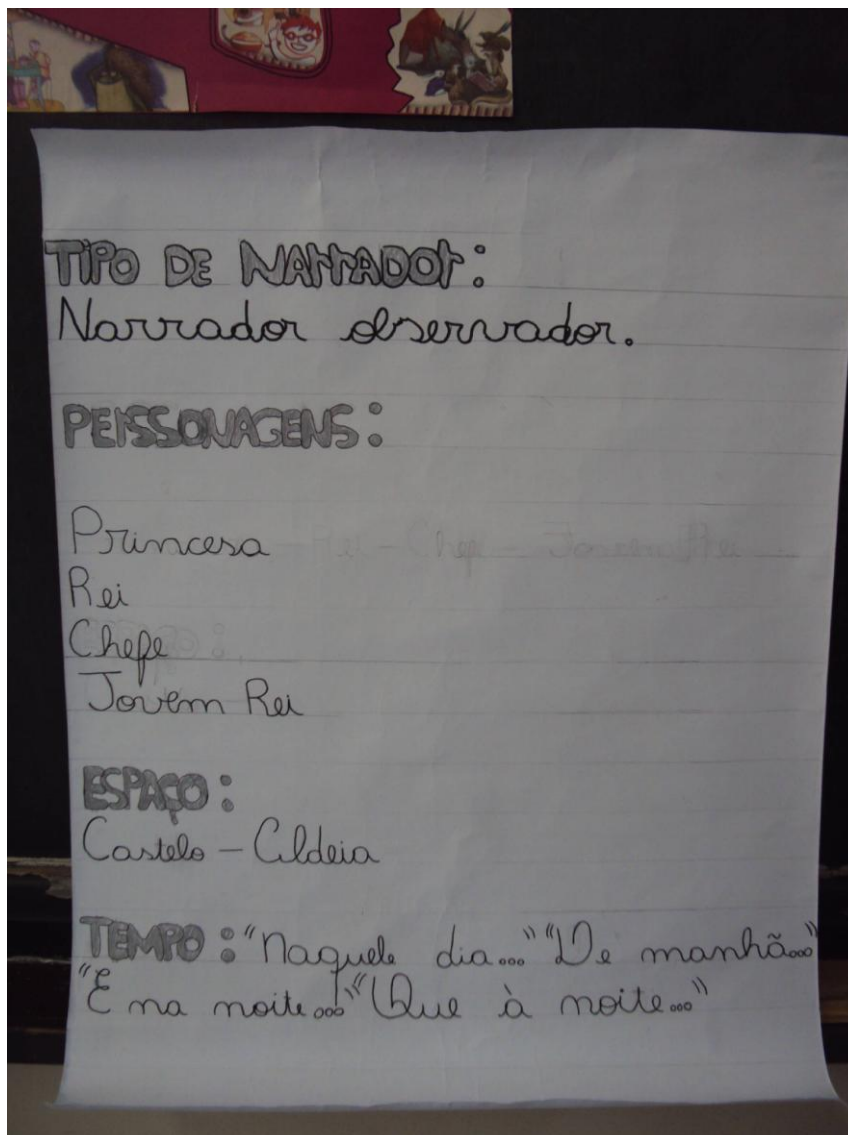 TIPO DE NARRADOR:
Narrador observador.
PERSSONAGENS:
Princesa
Rei
Chefe
Jovem Rei
ESPAÇO:
Castelo - Aldeia
TEMPO: "Naquele dia..." "De manhã..."
"E na noite..." "Que à noite..."